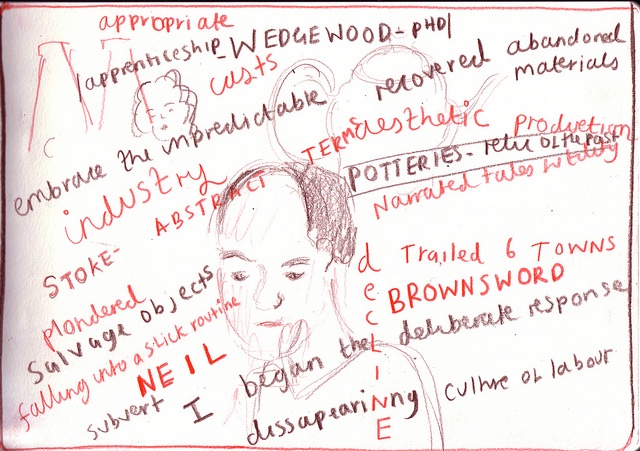 appropriate
apprenticeship - WEDGEWOOD - PHD
casts
recovered abandoned
materials
embrace the unpredictable
TERM aesthetic Production
industry
ABSTRACT
POTTERIES - relic of the past
Narrated tales
STOKE-
Trailed 6 TOWNS
BROWNSWORD
plondered
Salvage objects
falling into a slick routine
NEIL
subvert I began the deliberate response
dissapearinng
culture of labour
decLINE